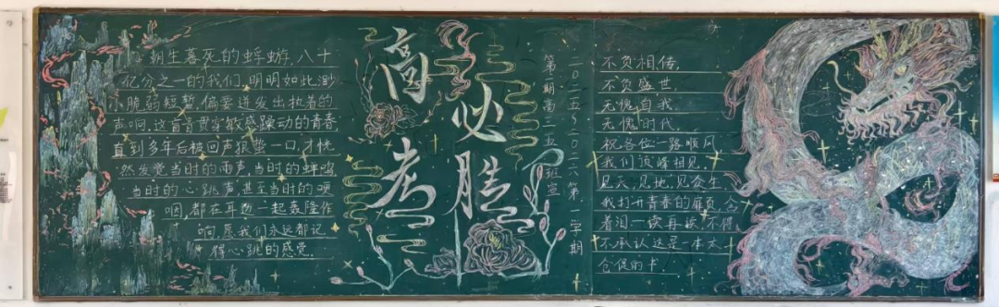 朝生暮死的蜉蝣,八十
亿分之一的我们,明明如此渺
小脆弱短暂,偏要迸发出执着的
声响,这首首贯穿敏感躁动的青春
直到多年后被回声狠蛰一口,才恍
然发觉当时的雨声,当时的蝉鸣
当时的心跳声,甚至当时的哽
咽,都在耳边一起轰隆作
响,愿我们永远都记
得心跳的感觉.
高考
必胜
二〇二五~二〇二六第一学期
第二期高三五班宣
不负相传,
不负盛世,
无愧自我,
无愧时代,
祝各位一路顺风
我们顶峰相见,
见天,见地,见众生.
我打开青春的扉页,含
着泪一读再读,不得
不承认这是一本太
仓促的书